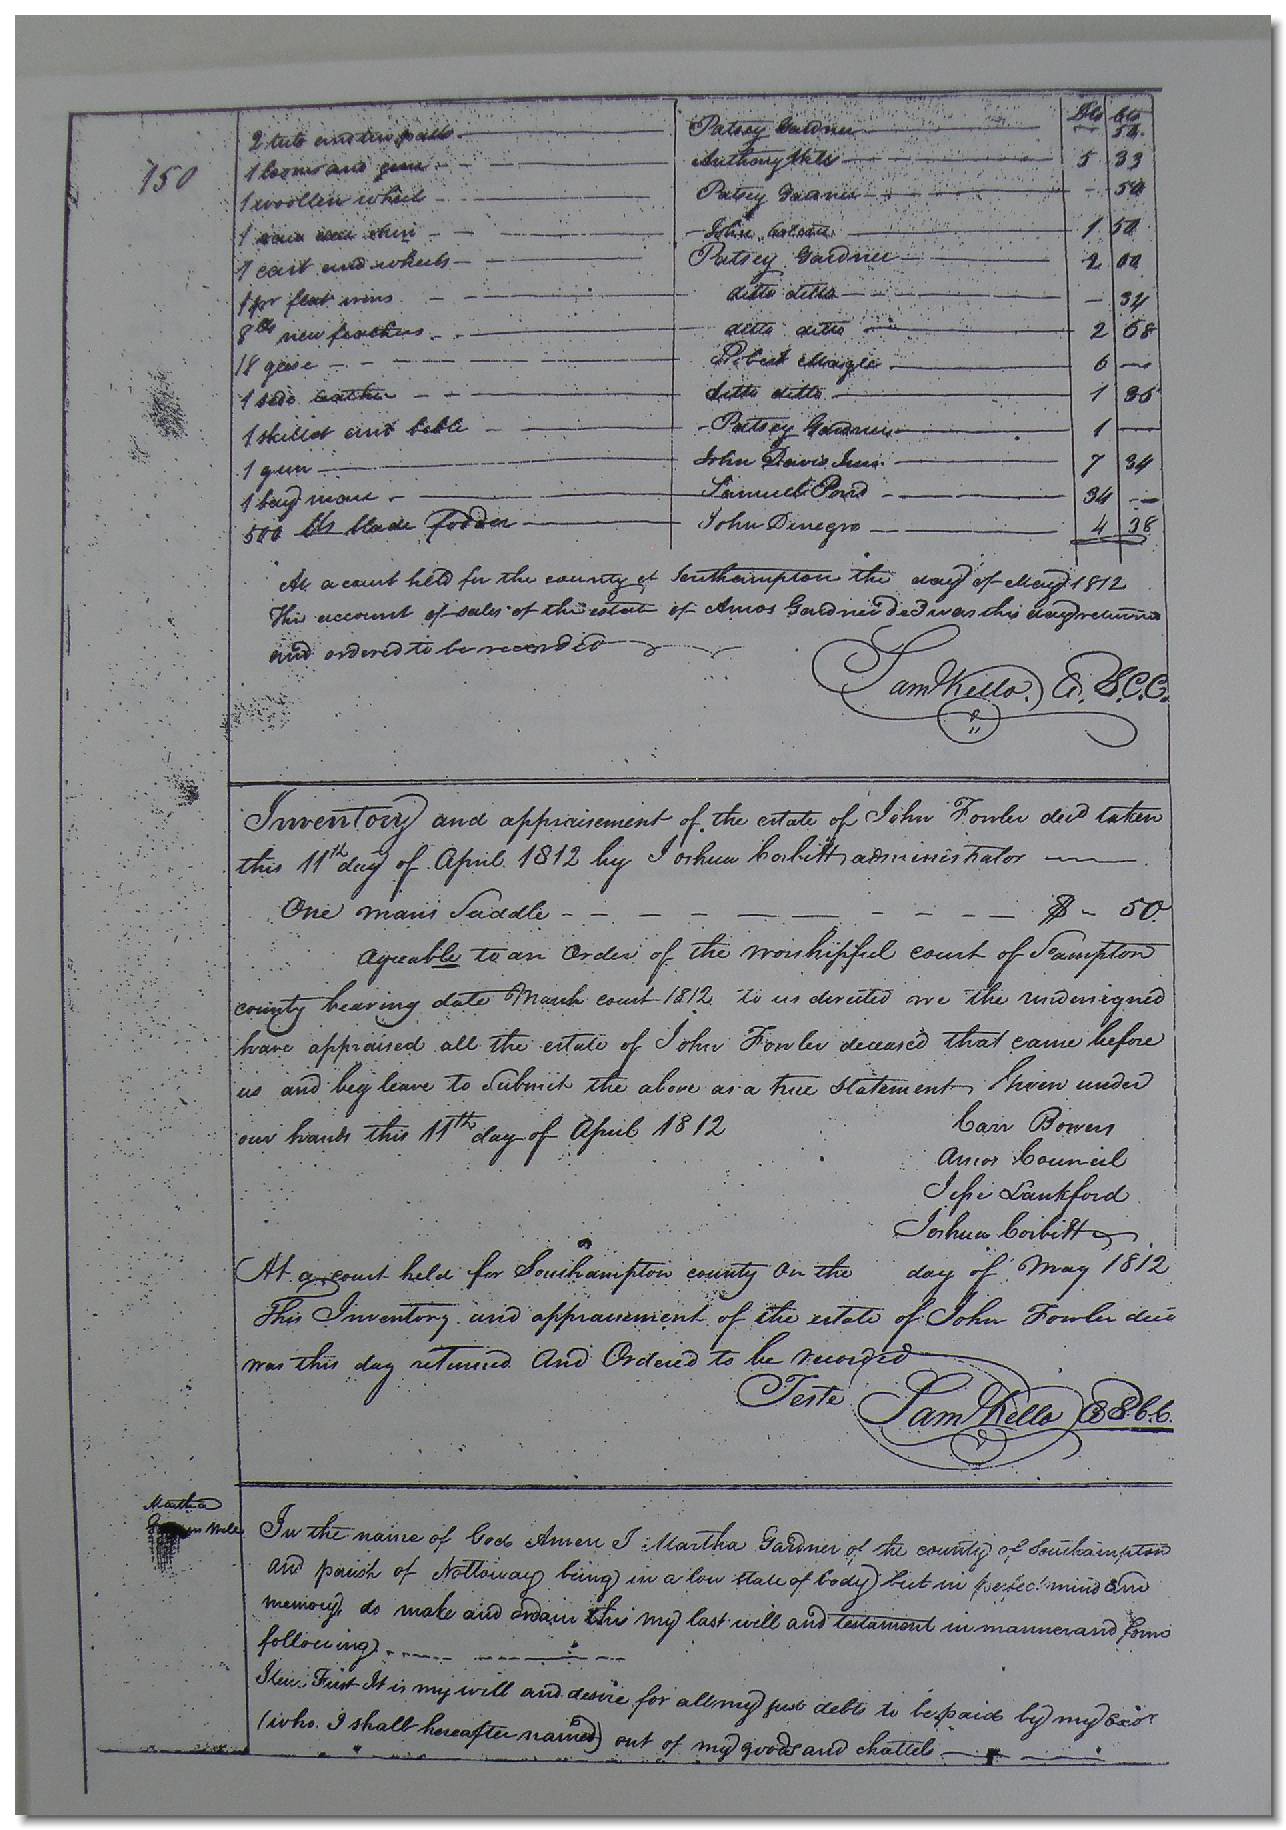 150
Dls Cts
2 tubs and two pails Patsey Gardner 50
1 loom and gear Anthony 5 33
1 woollen wheel Patsey Gardner - 50
1 John 1 50
1 cart and wheels Patsey Gardner 2 00
1 pr flat irons ditto ditto - 34
8 lbs new feathers ditto ditto 2 68
18 geese Robert 6 -
1 side leather ditto ditto 1 35
1 skillet and Patsey Gardner 1 -
1 gun John Davis Junr 7 34
1 bay mare Samuel Pond 34 --
500 lbs blade Fodder John Denegro 4 38
At a court held for the county of Southampton the day of May 1812
This account of sales of the estate of Amos Gardner decd was this day returned
and ordered to be recorded
Sam Kello C. S.C.C.
Inventory and appraisement of the estate of John Fowler decd taken
this 11th day of April 1812 by Joshua Corbitt administrator
One mans Saddle - - - - - - - - - $ - 50
agreable to an Order of the worshipful court of Sampton
county bearing date March court 1812 to us directed we the undersigned
have appraised all the estate of John Fowler deceased that came before
us and beg leave to Submit the above as a true statement, Given under
our hands this 11th day of April 1812
Carr Bowers
Amos Council
Jesse Lankford
Joshua Corbitt
At a court held for Southampton county On the day of May 1812
This Inventory and appraisement of the estate of John Fowler decd
was this day returned And Ordered to be recorded
Teste Sam Kello C S.C.C.
Martha
Will
In the name of God Amen I Martha Gardner of the county of Southampton
and parish of Nottoway being in a low state of body but in perfect mind and
memory, do make and ordain this my last will and testament in manner and form
following
Item First It is my will and desire for all my just debts to be paid by my Exor
(who I shall hereafter named) out of my goods and chattels